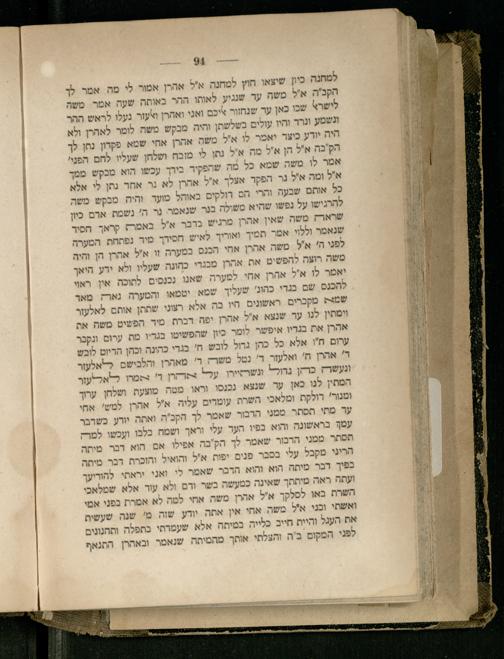 94
למחנה כיון שיצאו חוץ למחנה א״ל אהרן אמור לי מה אמר לך
הקב״ה א״ל משה עד שנגיע לאותו ההר באותה שעה אמר משה
לישר׳ שבו כאן עד שנחזור אליכם ואני ואהרן ואלעזר נעלו לראש ההר
ונשמע ונרד והיו עולים בשלשתן והיה מבקש משה לומר לאהרן ולא
היה יודע כיצד יאמר לו א״ל משה אהרן אחי שמא פקדון נתן לך
הקב״ה א״ל הן א״ל מה א״ל נתן לי מזבח ושלחן שעליו לחם הפני׳
אמר לו משה שמא כל מה שהפקיד בידך עכשו הוא מבקש ממך
א״ל ומה א״ל נר הפקד אצלך א״ל אהרן לא נר אחד נתן לי אלא
כל אותם שבעה והרי הם דולקים באוהל מועד והיה מבקש משה
להרגישו על נפשו שהיא משולה בנר שנאמר נר ה׳ נשמת אדם כיון
שראה משה שאין אהרן מרגיש בדבר א״ל באמת קראך חסיד
שנאמר וללוי אמר תמיך ואוריך לאיש חסידך מיד נפתחת המערה
לפני ה׳ א״ל משה אהרן אחי הכנס במערה זו א״ל אהרן הן והיה
משה רוצה להפשיט את אהרן מבגדי כהונה שעליו ולא ידע היאך
יאמר לו א״ל אהרן אחי למערה שאנו נכנסים לתוכה אין ראוי
להכנס שם בגדי כהונ׳ שעליך שמא יטמאו והמערה נאה מאד
שמא מקברים ראשונים היו בה אלא רצוני שתתן אותם לאלעזר
וימתין לנו עד שנצא א״ל אהרן יפה דברת מיד הפשיט משה את
אהרן את בגדיו איפשר לומר כיון שהפשיטו בגדיו מת ערום ונקבר
ערום ח״ו אלא כל כהן גדול לובש ח׳ בגדי כהונה וכהן הדיוט לובש
ד׳ אהרן ח׳ ואלעזר ד׳ נטל משה ד׳ מאהרן והלבישם לאלעזר
ונעשה כהן גדול ונשתיירו על אהרן ד׳ אמרו לאלעזר
המתין לנו כאן עד שנצא נכנסו וראו מטה מוצעת ושלחן ערוך
ומנור׳ דולקת ומלאכי השרת עומדים עליה א״ל אהרן למש׳ אחי
עד מתי תסתר ממני הדבור שאמר לך הקב״ה ואתה יודע כשדבר
עמך בראשונה והוא בפיו העד עלי וראך ושמח בלבו ועכשו למה
תסתר ממני הדבור שאמר לך הקב״ה אפילו אם הוא דבר מיתה
הריני מקבל עלי בסבר פנים יפות א״ל והואיל והזכרת דבר מיתה
בפיך דבר מיתה הוא והוא הדבר שאמר לי ואני יראתי להודיעך
ועתה ראה מיתתך שאינה כמעשה בשר ודם ולא עוד אלא שמלאכי
השרת באו לסלקך א״ל אהרן משה אחי למה לא אמרת בפני אמי
ואשתי ובני א״ל משה אחי אין אתה יודע שזה מ׳ שנה שעשית
את העגל והיית חייב כלייה במיתה אלא שעמדתי בתפלה ותחנונים
לפני המקום ב״ה והצלתי אותך מהמיתה שנאמר ובאהרן התאנף